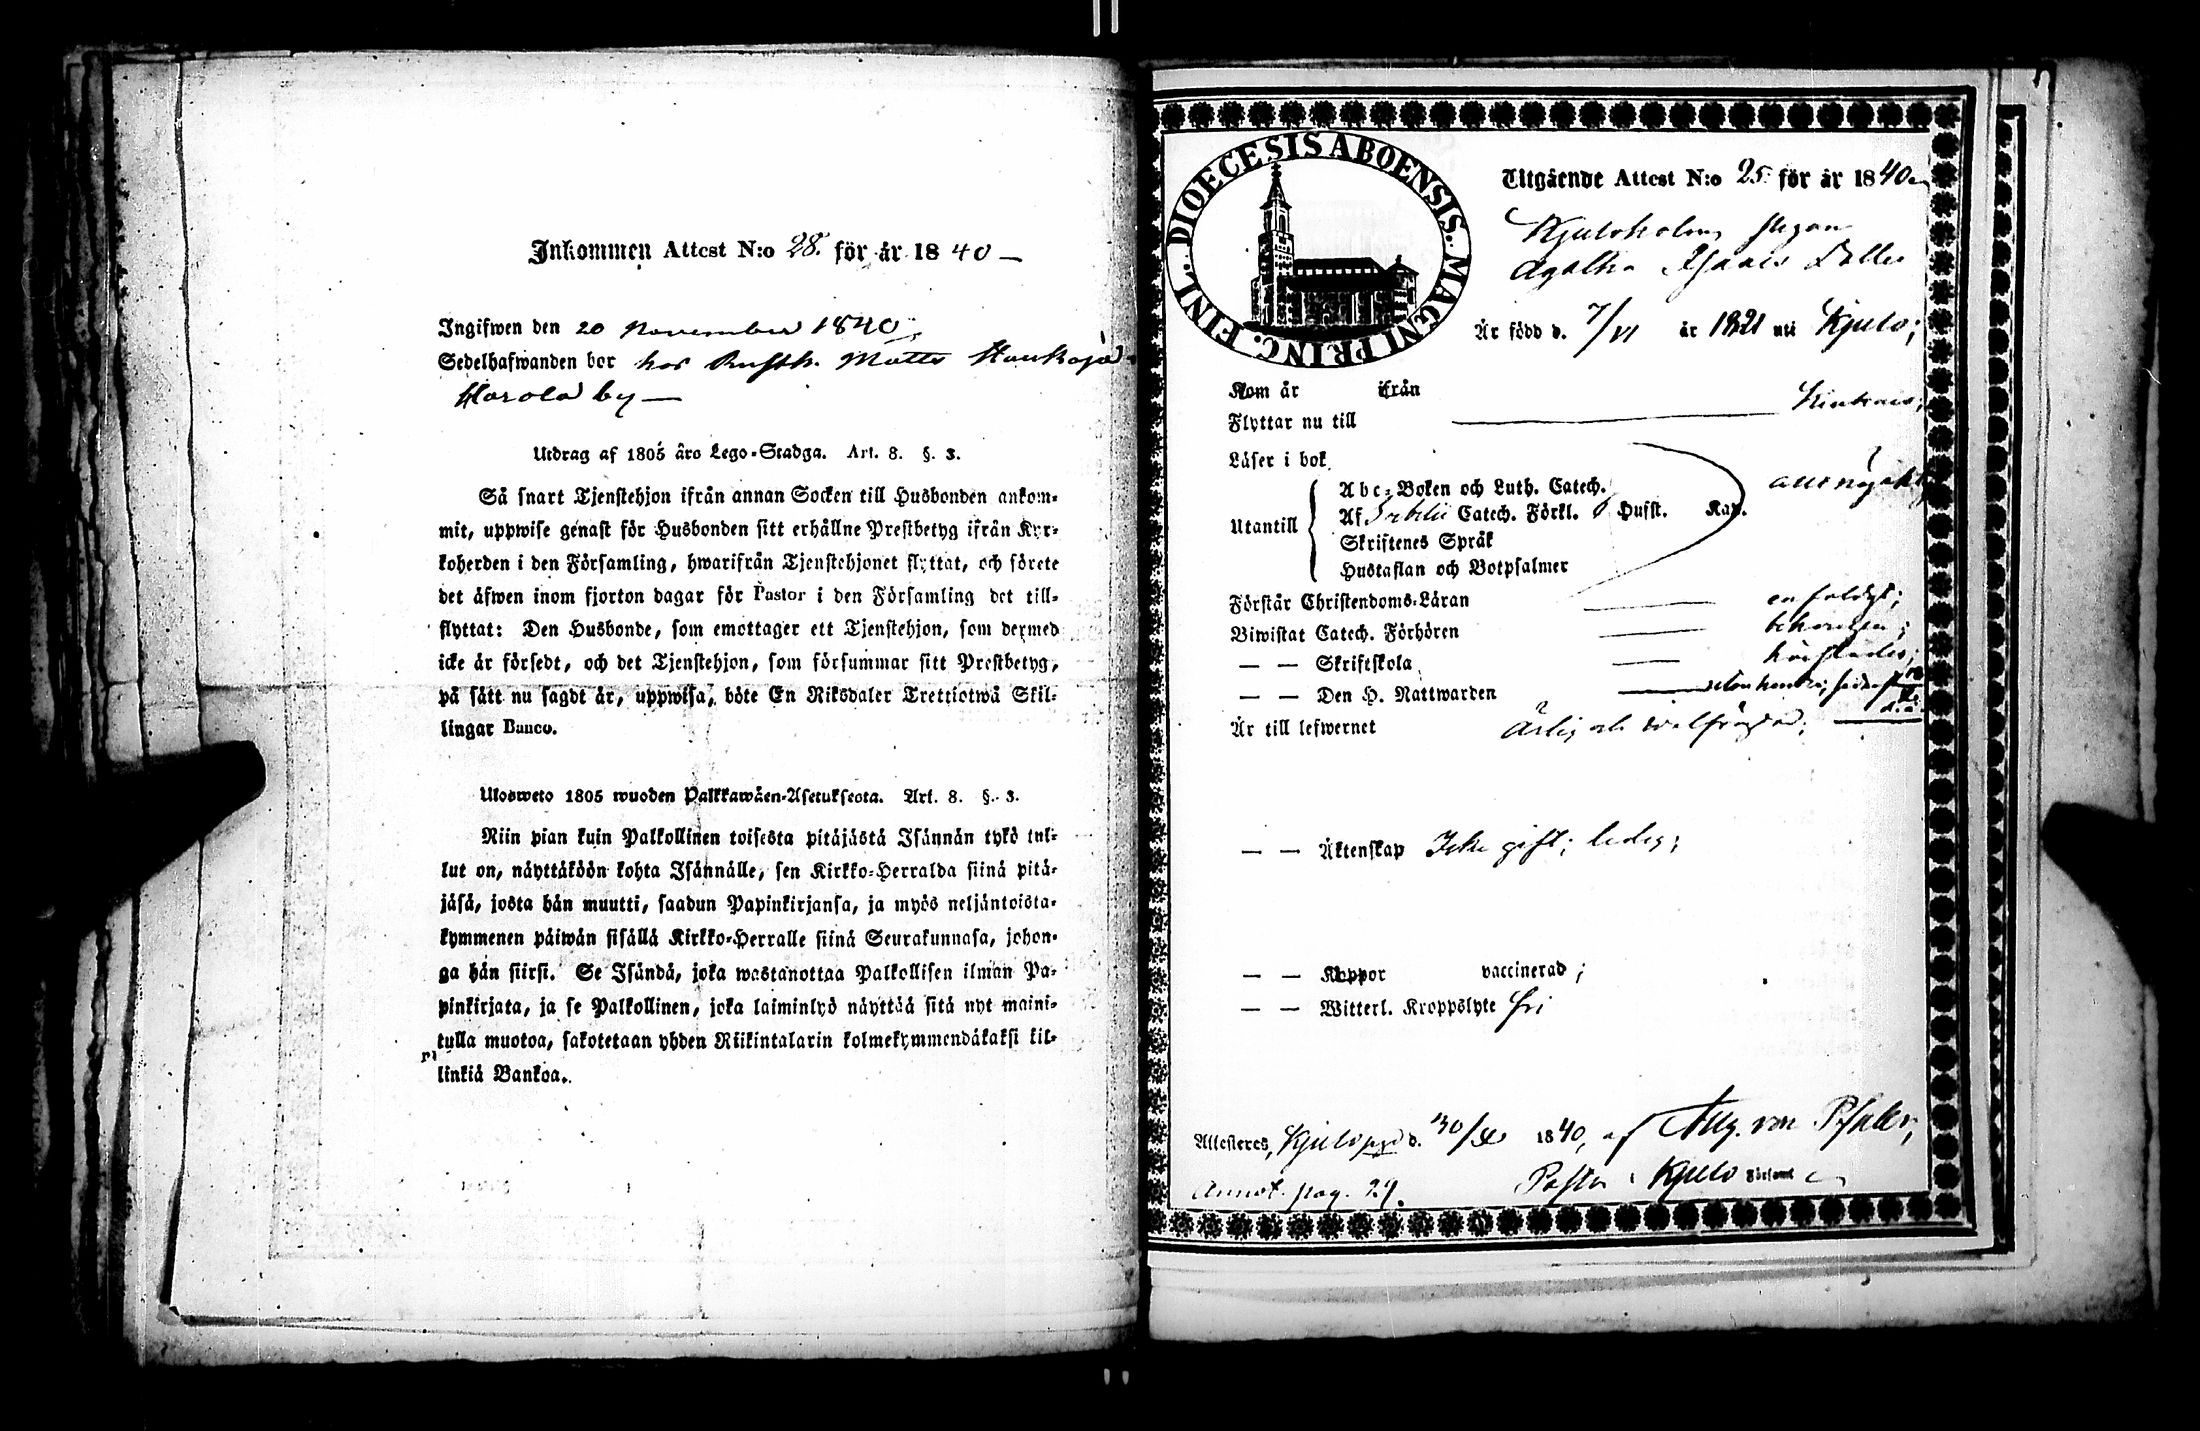 Inkommen Attest N:o 28. för år 1840
Ingifwen den 20 November 1840
Sedelhafwanden bor hos Rusth. Matts
Harola by
Utdrag af 1805 års Lego-Stadga. Art. 8. §. 3.
Så snart Tjenstehjon ifrån annan Socken till Husbonden ankom-
mit, uppwise genast för Husbonden sitt erhållne Prestbetyg ifrån Kyr-
koherden i den Församling, hwarifrån Tjenstehjonet flyttat, och förete
det äfwen inom fjorton dagar för Pastor i den Församling det till-
flyttat: Den Husbonde, som emottager ett Tjenstehjon, som dermed
icke är försedt, och det Tjenstehjon, som försummar sitt Prestbetyg,
på sätt nu sagdt är, uppwisa, böte En Riksdaler Trettiotwå Skil-
lingar Banco.
Ulosweto 1805 wuoden Palkkawäen-Asetuksesta. Art. 8. §. 3.
Niin pian kuin Palkollinen toisesta pitäjästä Isännän tykö tul-
lut on, näyttäköön kohta Isännälle, sen Kirkko-Herralda siinä pitä-
jäsä, josta hän muutti, saadun Papinkirjansa, ja myös neljäntoista-
kymmenen päiwän sisällä Kirkko-Herralle siinä Seurakunnasa, johon-
ga hän siirsi. Se Isändä, joka wastanottaa Palkollisen ilman Pa-
pinkirjata, ja se Palkollinen, joka laiminlyö näyttää sitä nyt maini-
tulla muotoa, sakotetaan yhden Riikintalarin kolmekymmendäkaksi kil-
linkiä Bankoa.
DIOECESIS ABOENSIS. MAGNI PRINC. FINL.
Utgående Attest N:o 25 för år 1840
Kjuloholms pigan
Agatha Isaacs Dotter
Är född d. 7/VI år 1821 uti Kjulo;
Kom år ifrån
Flyttar nu till
Läser i bok
Abc-Boken och Luth. Catech.
Utantill Af Catech. Förkl. Husst. Kap.
Skriftenes Språk
Hustaflan och Botpsalmer
Förstår Christendoms-Läran enfaldigt;
Biwistat Catech. Förhören
— — Skriftskola
— — Den H. Nattwarden
Är till lefwernet Ärlig och wälfrägdad;
— — Äktenskap Icke gift; ledig;
— — Koppor vaccinerad;
— — Witterl. Kroppslyte fri
Attesteres, Kjulo d. 1840, af Aug. von Pfaler,
Annot. pag. 29. Pastor i Kjulo Församl